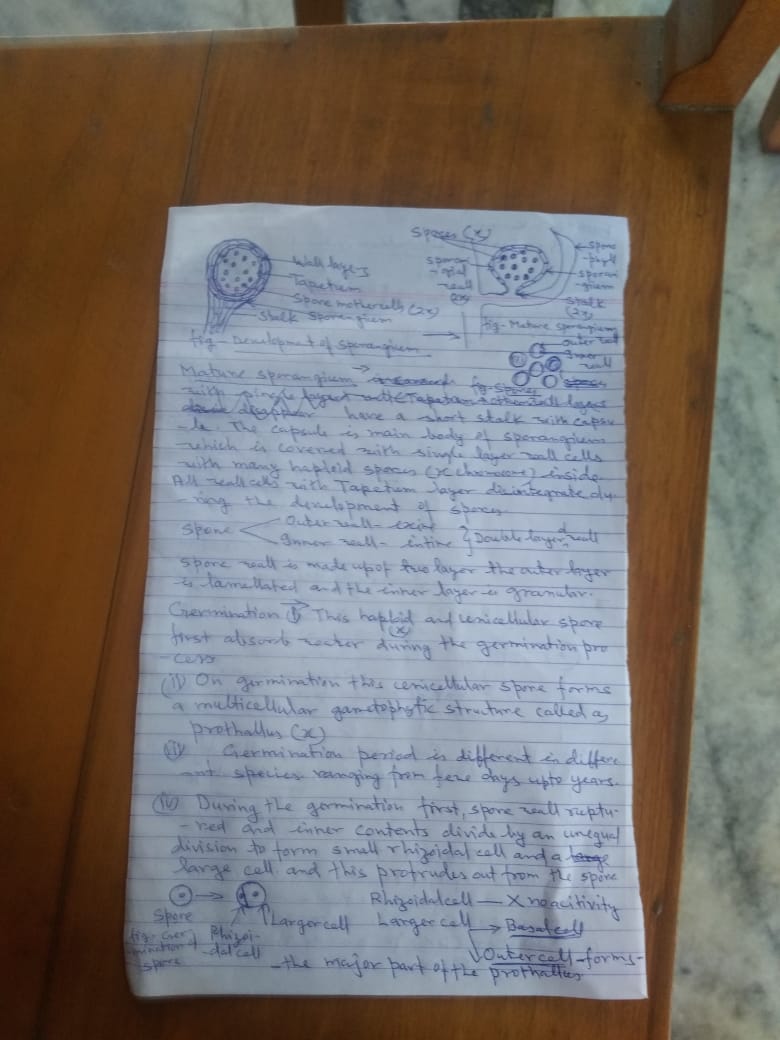 Spores (x)
Wall layers
Tapetum
Spore mothercells (2x)
Stalk Sporangium
fig- Development of sporangium
sporan
-gial
wall
spore
sporan
-gium
Stalk
(2x)
fig- Mature sporangium
outer wall
Inner
wall
fig-spores
Mature sporangium →
with single layer wall (Tapetum other wall layers
disappear have a short stalk with capsu
-le. The capsule is main body of sporangium
which is covered with single layer wall cells
with many haploid spores (x chromosome) inside.
All wall cells with Tapetum layer disintegrate du-
-ring the development of spores
Spore
Outer wall- exine
Inner wall- intine } Double layered wall
Spore wall is made up of two layer the outer layer
is lamellated and the inner layer is granular.
Germination → (i) This haploid and unicellular spore
(x)
first absorb water during the germination pro
-cess
(ii) On germination this unicellular spore forms
a multicellular gametophytic struture called as
prothallus (x)
(iii) Germination period is different in differe
-nt species ranging from few days upto years.
(iv) During the germination first, spore wall ruptu-
-red and inner contents divide by an unequal
division to form small rhizoidal cell and a large
large cell and this protrudes out from the spore
Spore
fig- Ger
-mination of
spore
Rhizoi-
-dal cell
Larger cell
Rhizoidal cell — X no acitivity
Larger cell → Basal cell
Outer cell - forms-
-the major part of the prothallus